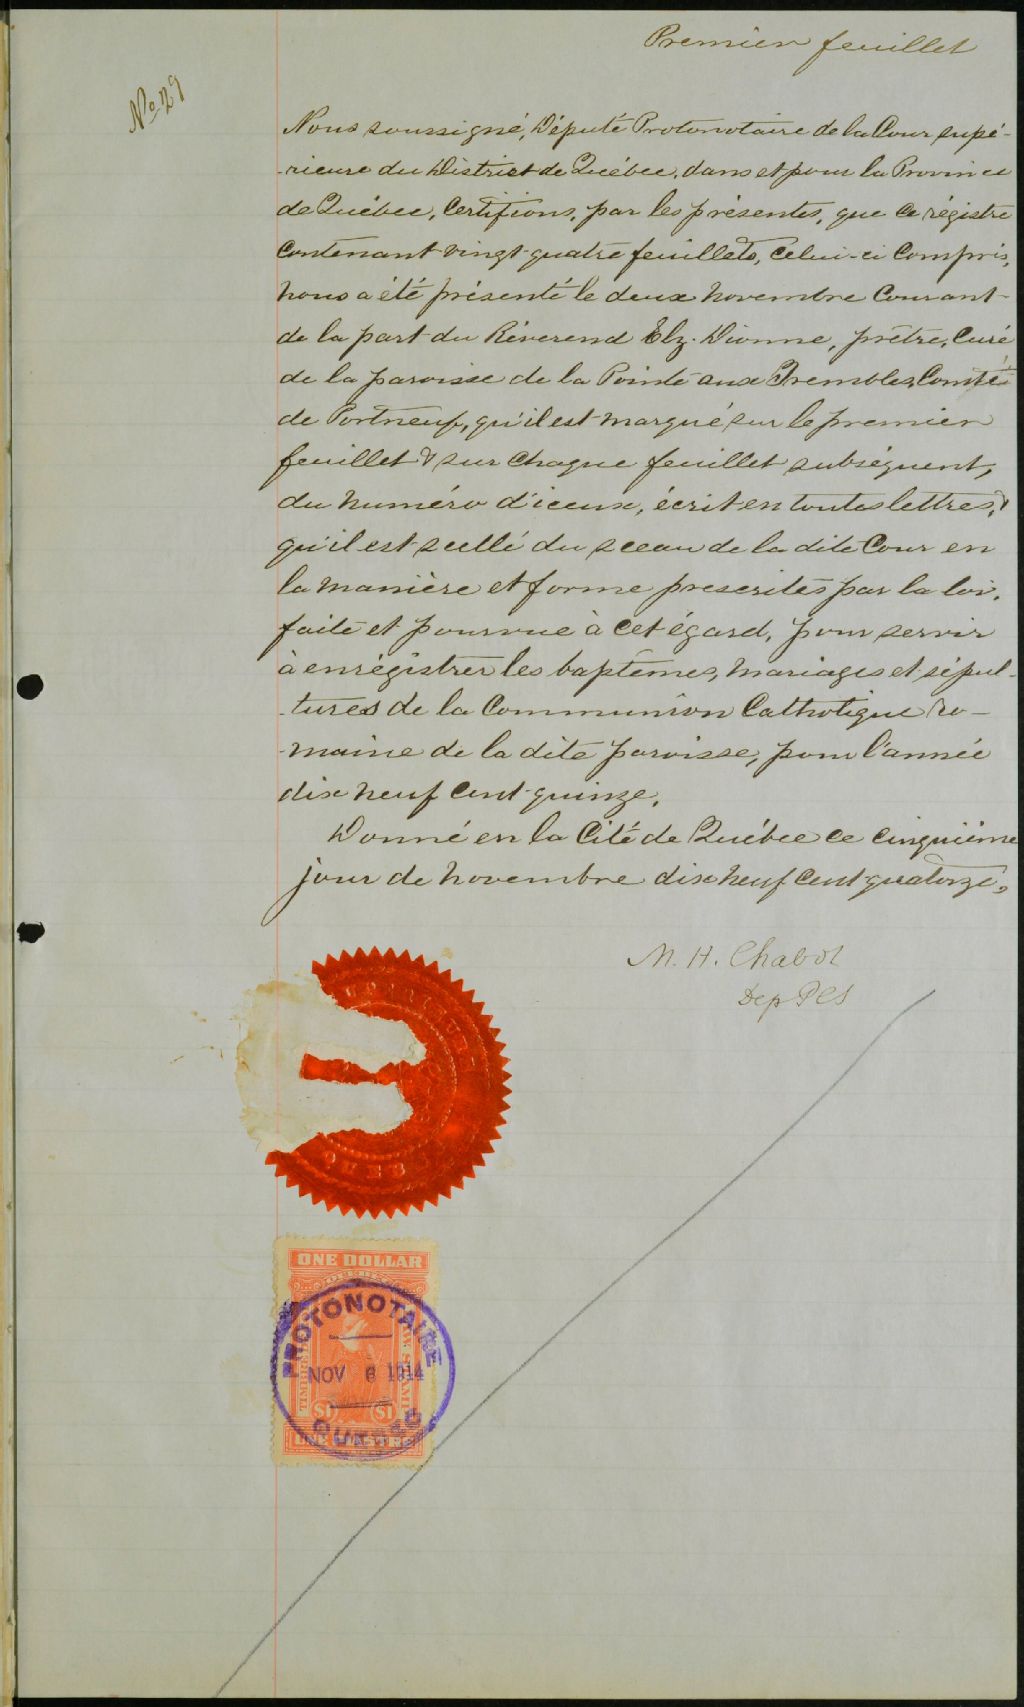 Premier feuillet
No 29
Nous soussigné, Député Protonotaire de la Cour supé-
-rieure du District de Québec, dans et pour la Province
de Québec, Certifions, par les présentes, que ce régistre
contenant vingt-quatre feuillets, celui-ci compris,
nous a été présenté le deux novembre courant
de la part du Réverend Elz. Dionne, prêtre, Curé
de la paroisse de la Pointe aux Trembles, Comté
de Portneuf, qu'il est marqué sur le premier
feuillet & sur chaque feuillet subséquent,
du numéro d'iceux, écrit en toutes lettres, &
qu'il est scellé du sceau de la dite Cour en
la manière et forme prescrites par la loi,
faite et pourvue à cet égard, pour servir
à enrégistrer les baptêmes, mariages et sépul-
-tures de la Communion Catholique Ro-
-maine de la dite paroisse, pour l'année
dix neuf cent quinze.
Donné en la Cité de Québec ce cinquième
jour de novembre dix neuf cent quatorze,
M. H. Chabot
Dep PCS
ONE DOLLAR
QUEBEC
PROTONOTAIRE
NOV 6 1914
LAW STAMP
$1 $1
QUEBEC
UNE PIASTRE